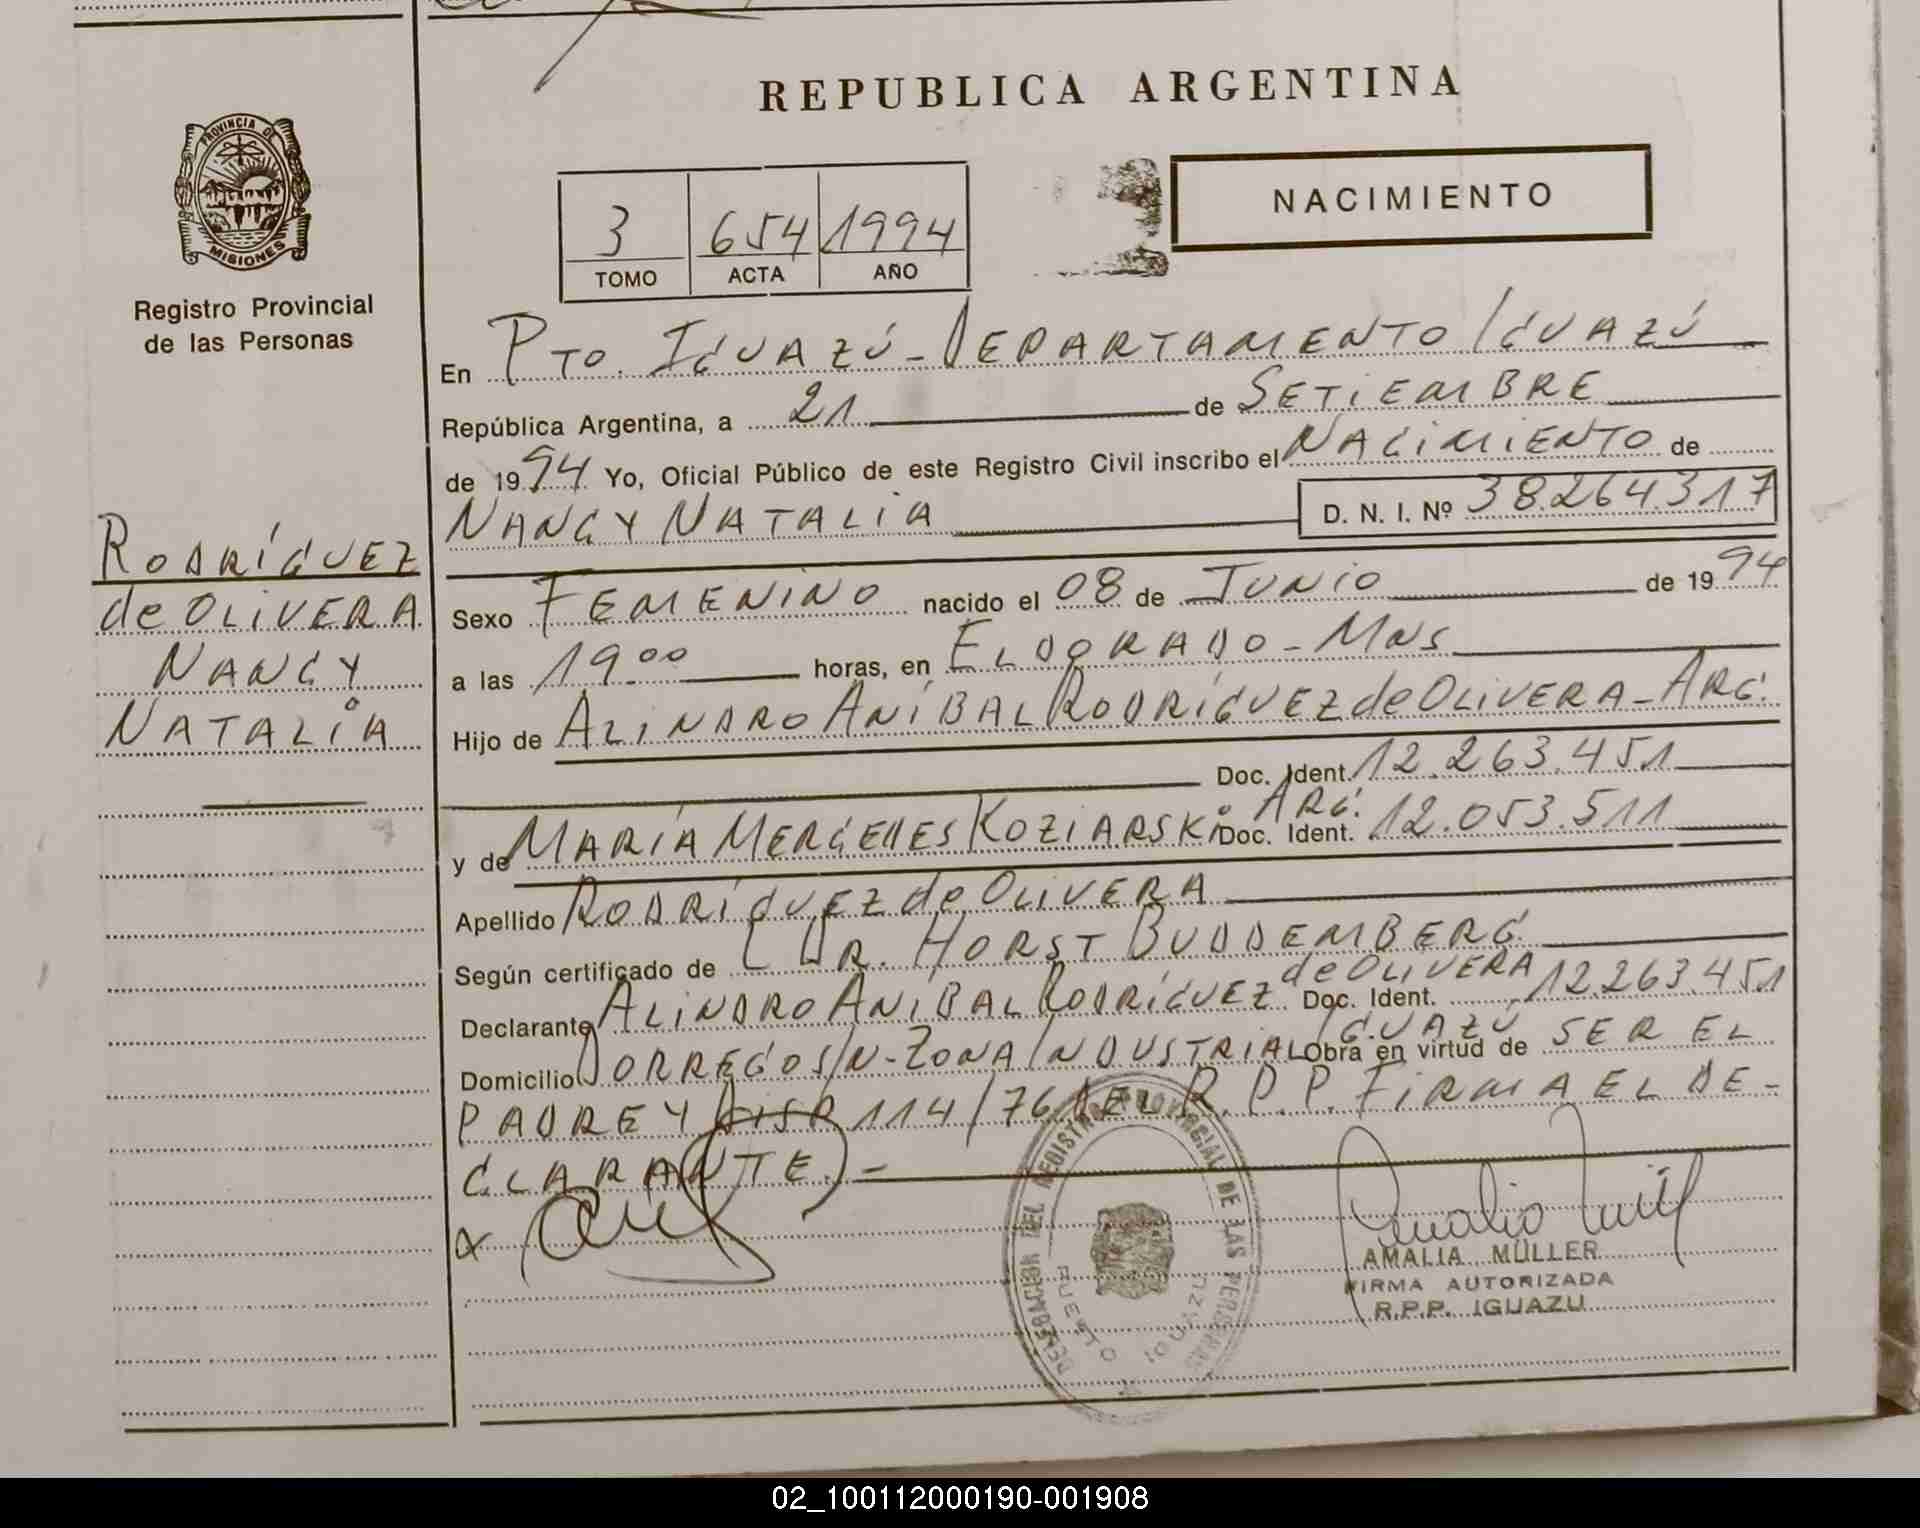 REPUBLICA ARGENTINA
PROVINCIA DE
MISIONES
Registro Provincial
de las Personas
NACIMIENTO
3 654 1994
TOMO ACTA AÑO
En Pto. Iguazú - Departamento Iguazú
República Argentina, a 21 de Setiembre
de 1994 Yo, Oficial Público de este Registro Civil inscribo el Nacimiento de
Nancy Natalia D. N. I. Nº 38.264.317
Rodríguez
de Olivera
Nancy
Natalia
Sexo Femenino nacido el 08 de Junio de 1994
a las 19 00 horas, en Eldorado - Mns
Hijo de Alindro Aníbal Rodríguez de Olivera - Arg.
Doc. Ident. 12.263.451
y de María Mercedes Koziarski Arg. Doc. Ident. 12.053.511
Apellido Rodríguez de Olivera
Según certificado de Dr. Horst Buddemberg
Declarante Alindro Aníbal Rodríguez de Olivera Doc. Ident. 12.263.451
Domicilio Dorrego S/N - Zona Industrial Iguazú Obra en virtud de ser el
padre y Disp 114/76 del R. P. P. Firma el de-
clarante. -
DELEGACION DEL REGISTRO PROVINCIAL DE LAS PERSONAS
PUERTO IGUAZU
AMALIA MÜLLER
FIRMA AUTORIZADA
R.P.P. IGUAZU
02_100112000190-001908